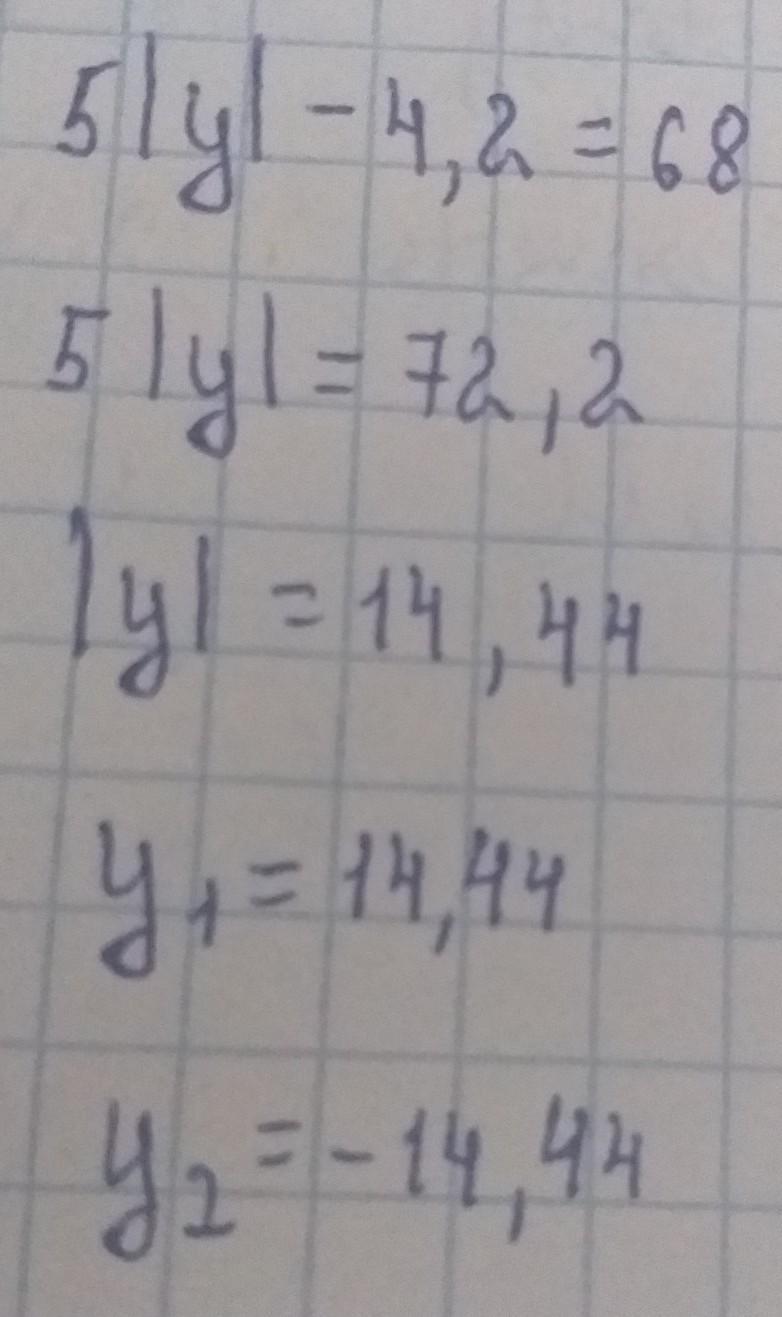 5|y| - 4,2 = 68
5|y| = 72,2
|y| = 14,44
y₁ = 14,44
y₂ = -14,44